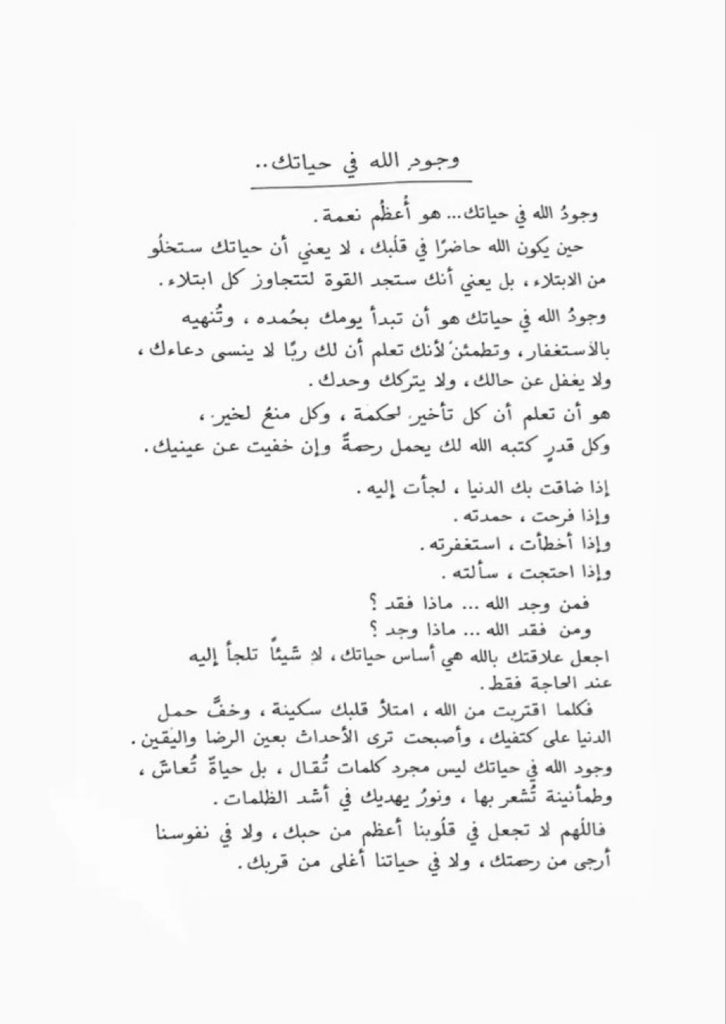 وجود الله في حياتك..
وجودُ الله في حياتك... هو أُعظُم نعمة.
حين يكون الله حاضرًا في قلبك، لا يعني أن حياتك ستخلُو
من الابتلاء، بل يعني أنك ستجد القوة لتتجاوز كل ابتلاء.
وجودُ الله في حياتك هو أن تبدأ يومك بحُمده، وتُنهيه
بالاستغفار، وتطمئن لأنك تعلم أن لك ربًا لا ينسى دعاءك،
ولا يغفل عن حالك، ولا يتركك وحدك.
هو أن تعلم أن كل تأخير لحكمة، وكل منعُ لخير،
وكل قدرٍ كتبه الله لك يحمل رحمةً وإن خفيت عن عينيك.
إذا ضاقت بك الدنيا، لجأت إليه.
وإذا فرحت، حمدته.
وإذا أخطأت، استغفرته.
وإذا احتجت، سألته.
فمن وجد الله... ماذا فقد؟
ومن فقد الله... ماذا وجد؟
اجعل علاقتك بالله هي أساس حياتك، لا شيئاً تلجأ إليه
عند الحاجة فقط.
فكلما اقتربت من الله، امتلأ قلبك سكينة، وخفَّ حمل
الدنيا على كتفيك، وأصبحت ترى الأحداث بعين الرضا واليقين.
وجود الله في حياتك ليس مجرد كلمات تُقال، بل حياةً تُعاش،
وطمأنينة تُشعر بها، ونورُ يهديك في أشد الظلمات.
فاللهم لا تجعل في قلُوبنا أعظم من حبك، ولا في نفوسنا
أرجى من رحمتك، ولا في حياتنا أغلى من قربك.